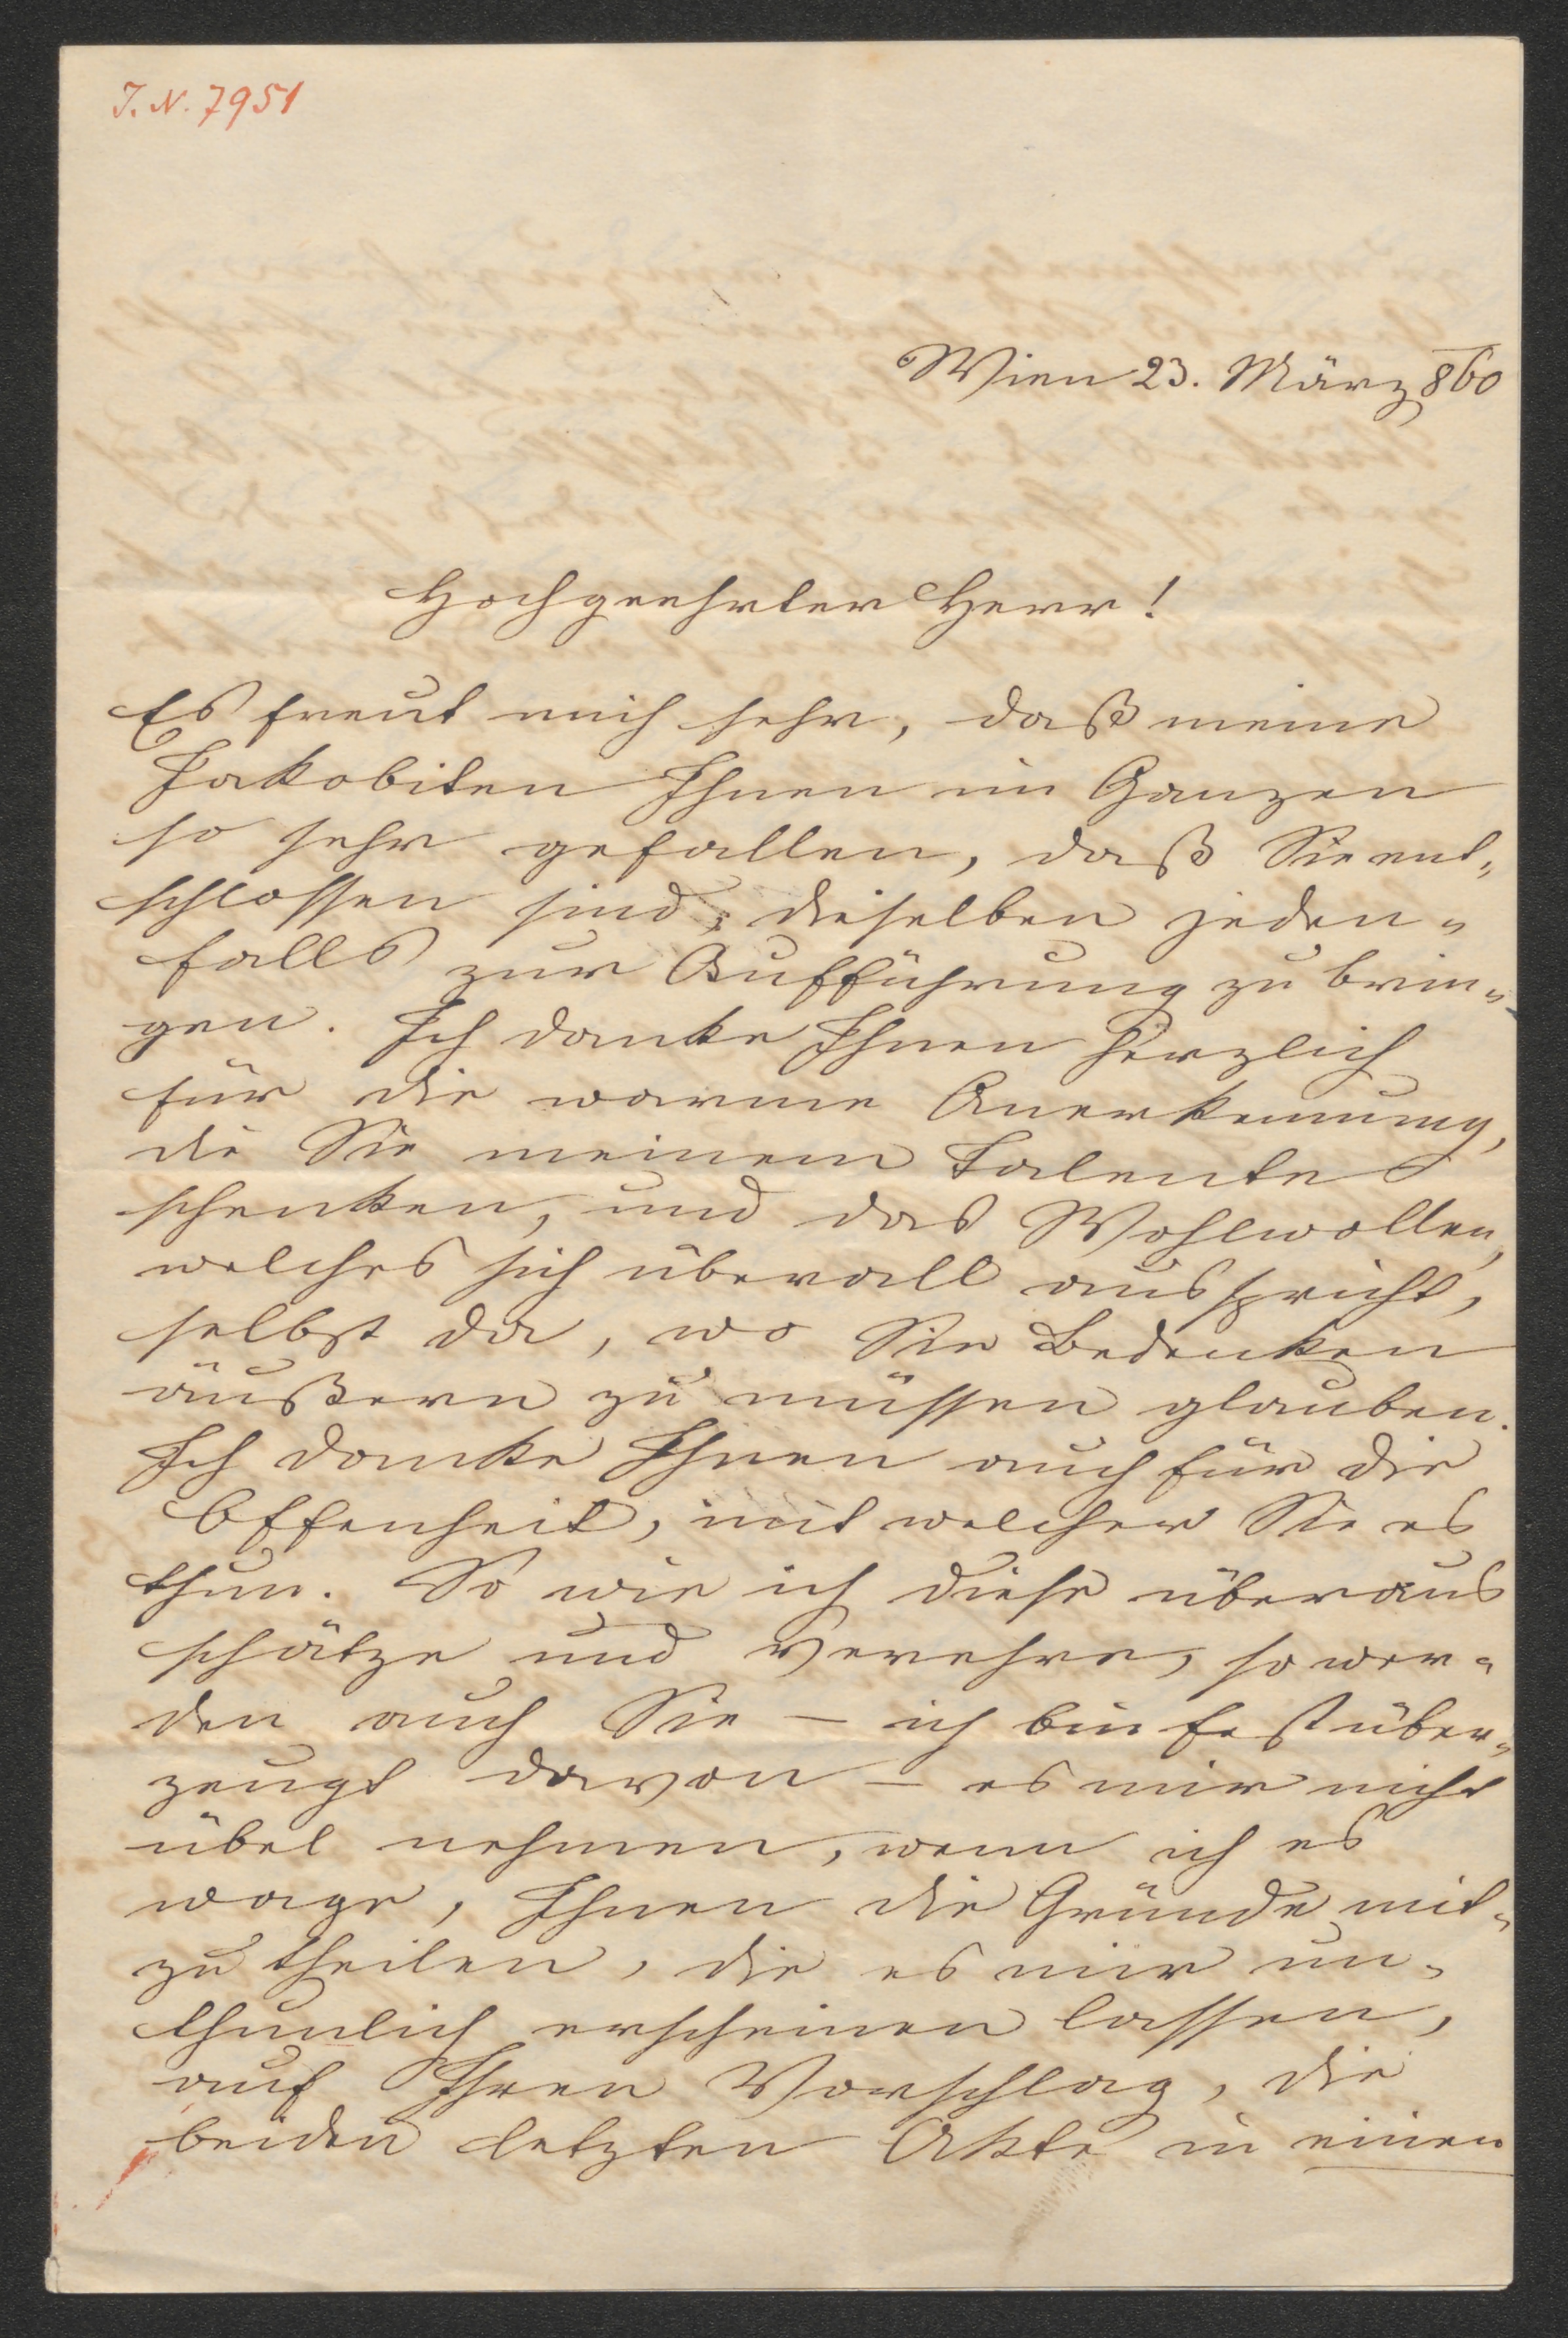 I. N. 7951
Wien 23. März 860
Hochgeehrter Herr!
Es freut mich sehr, daß meine
Jakobiten Ihnen im Ganzen
so sehr gefallen, daß Sie ent-
schlossen sind, dieselben jeden-
falls zur Aufführung zu brin-
gen. Ich danke Ihnen herzlich
für die warme Anerkennung,
die Sie meinem Talente
schenken, und das Wohlwollen,
welches sich überall ausspricht,
selbst da, wo Sie Bedenken
äußern zu müssen glauben.
Ich danke Ihnen auch für die
Offenheit, mit welcher Sie es
thun. So wie ich diese überaus
schätze und verehre, so wer-
den auch Sie – ich bin fest über-
zeugt davon – es mir nicht
übel nehmen, wenn ich es
wage, Ihnen die Gründe mit-
zutheilen, die es mir un-
thunlich erscheinen lassen,
auf Ihren Vorschlag, die
beiden letzten Akte in einen